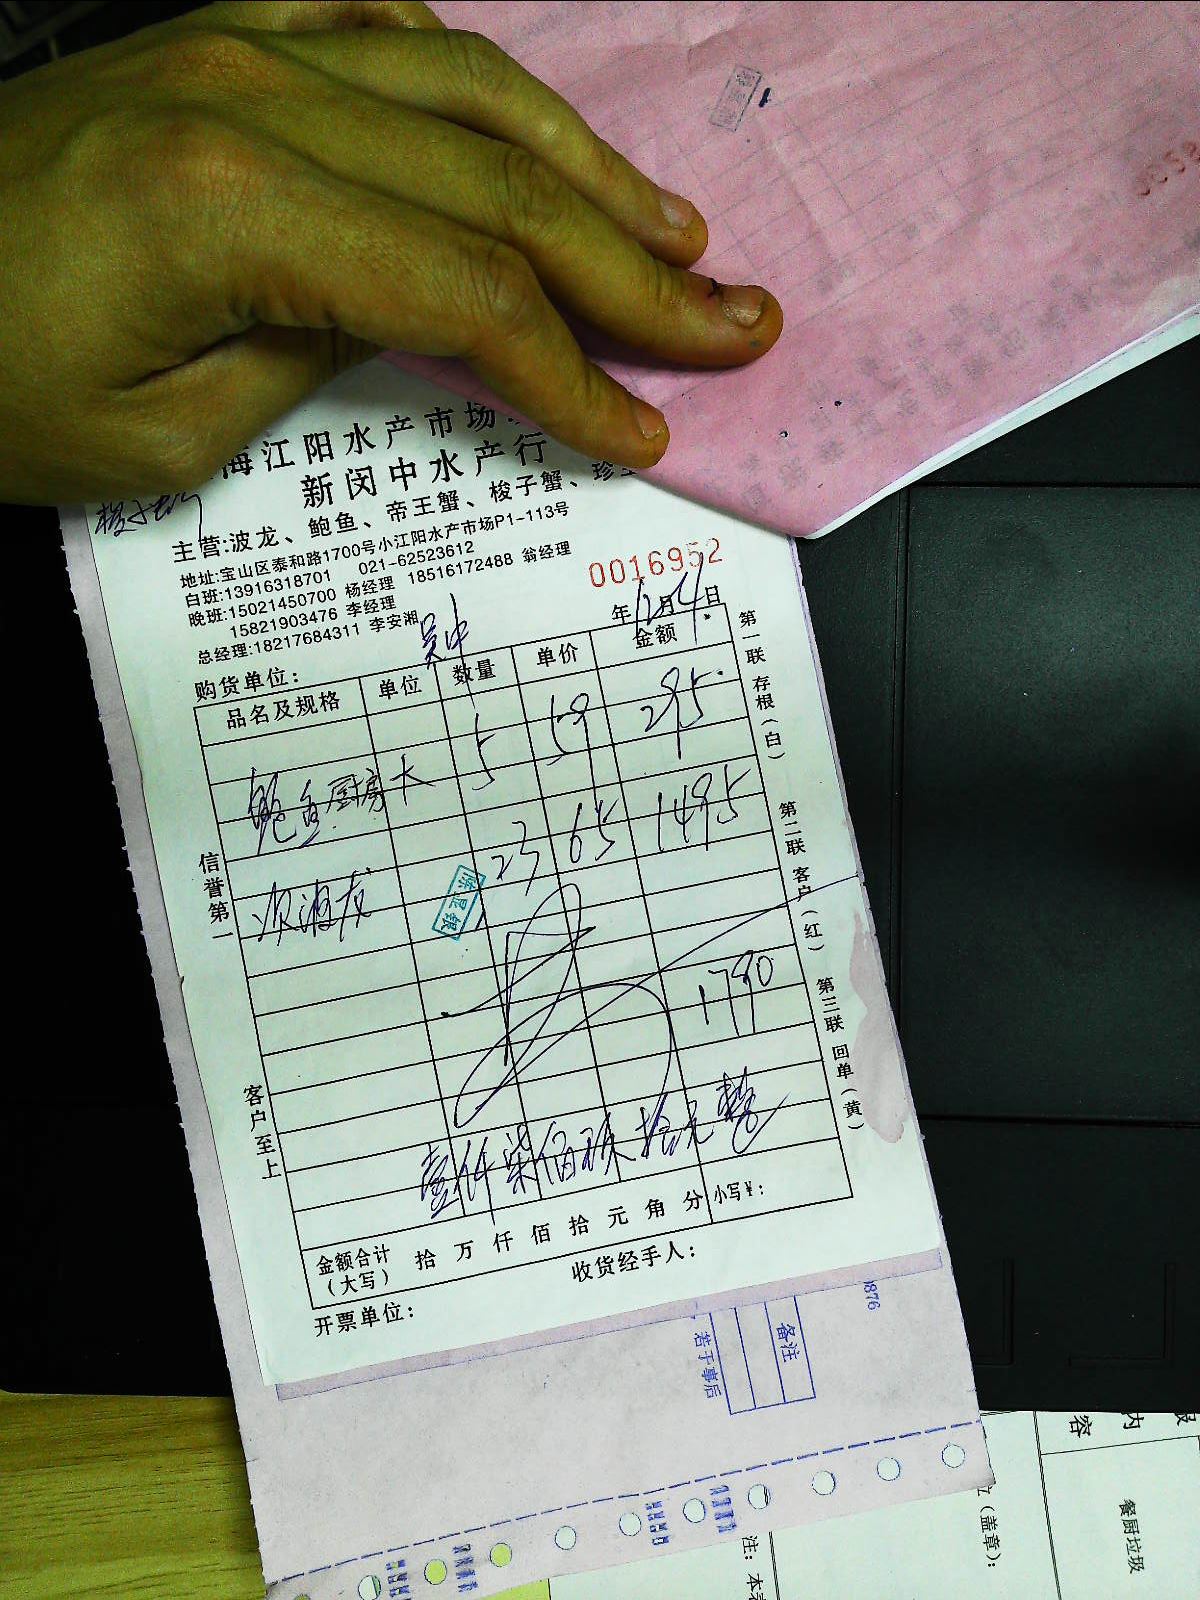 海江阳水产市场
新闵中水产行
主营:波龙、鲍鱼、帝王蟹、梭子蟹、珍
地址:宝山区泰和路1700号小江阳水产市场P1-113号
白班:13916318701 021-62523612
晚班:15021450700 杨经理 18516172488 翁经理
15821903476 李经理
总经理:18217684311 李安湘
0016952
年12月4日
购货单位: 吴中
品名及规格 单位 数量 单价 金额
鲍鱼厨房大 5 59 295
次波龙 23 65 1495
1790
壹仟柒佰玖拾元整
金额合计（大写） 拾 万 仟 佰 拾 元 角 分 小写¥:
开票单位: 收货经手人:
信誉第一
客户至上
第一联 存根（白）
第二联 客户（红）
第三联 回单（黄）
备注
若于事后
0876
内容
餐厨垃圾
（盖章）:
注: 本